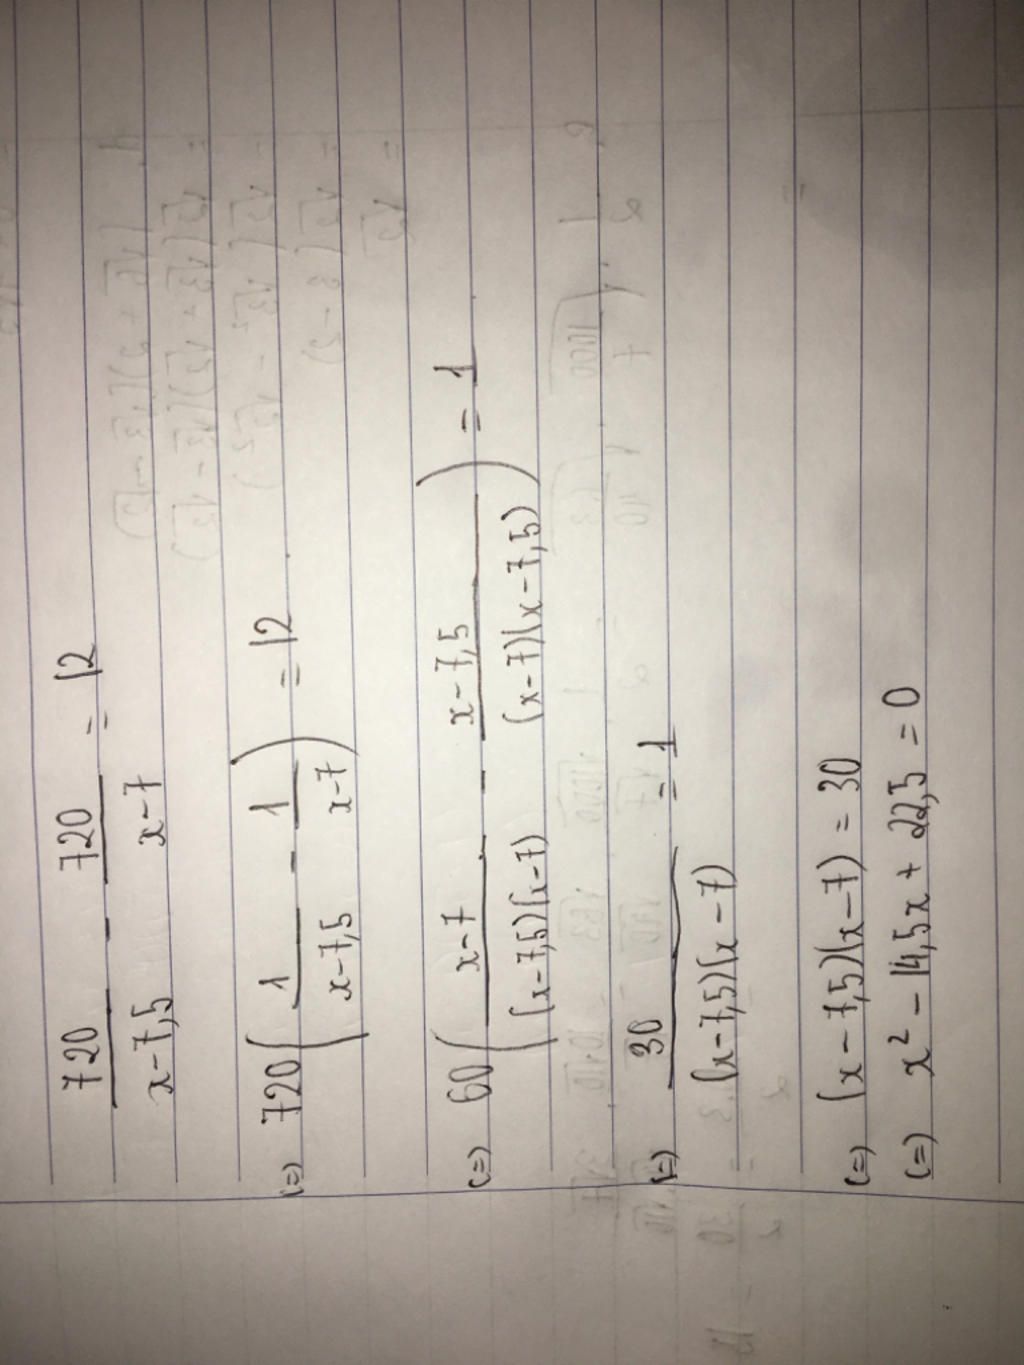 720/(x-7,5) - 720/(x-7) = 12
(=) 720(1/(x-7,5) - 1/(x-7)) = 12
(=) 60((x-7)/((x-7,5)(x-7)) - (x-7,5)/((x-7)(x-7,5))) = 1
(=) 30/((x-7,5)(x-7)) = 1
(=) (x-7,5)(x-7) = 30
(=) x² - 14,5x + 22,5 = 0